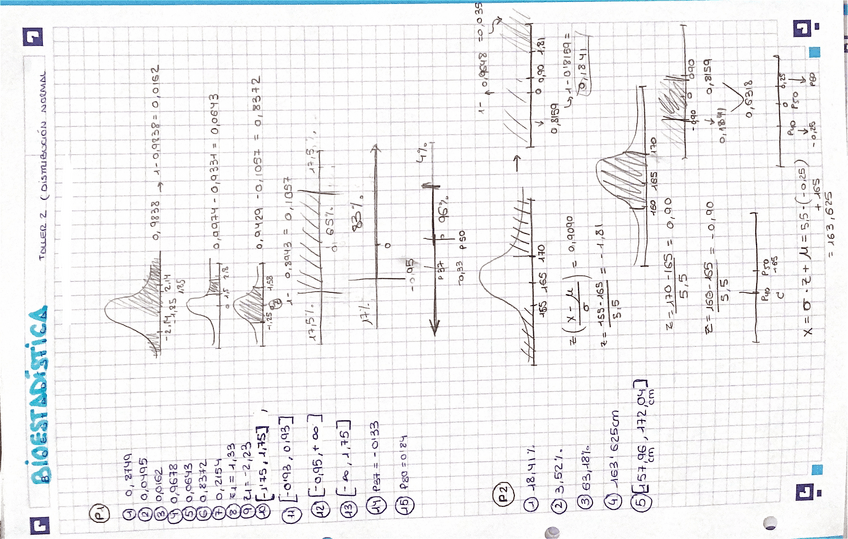 BIOESTADÍSTICA
TALLER 2 (DISTRIBUCIÓN NORMAL)
P1
1 0,8749
2 0,0495
3 0,0162
4 0,9678
5 0,0643
6 0,8372
7 0,2154
8 z1 = 1,33
9 z1 = -2,23
10 [-1,75 , 1,75]
11 [-0,93 , 0,93]
12 [-0,95, +∞]
13 [-∞, 1,75]
14 P37 = -0,33
15 P80 = 0,84
-2,14 1,85 2,14
0,9838 → 1-0,9838 = 0,0162
0 1,5 2,8
0,9974 - 0,9331 = 0,0643
-1,25 0 1,58
0,9429 - 0,1057 = 0,8372
1- 0,8943 = 0,1057
17,5% 0 65% 17,5%
17% 83%
-0,95 0
P37 P50 96% 4%
-0,33 0
P2
1 18,41%
2 3,52%
3 63,18%
4 163,625cm
5 [157,96 cm, 172,04 cm]
155 165 170 → 0 0,90 1,81
1- 0,9648 = 0,035
0,8159
1-0,8159 = 0,1841
z(x - μ / σ) = 0,9090
z = 155-165 / 5,5 = -1,81
160 165 170
z = 170-165 / 5,5 = 0,90
z = 160-165 / 5,5 = -0,90
-0,90 0 0,90
0,1841 0,8159
0,6318
P40 P50
165
P40 P50 P60
-0,25 0 0,25
x = σ · z + μ = 5,5 · (-0,25) + 165
= 163,625